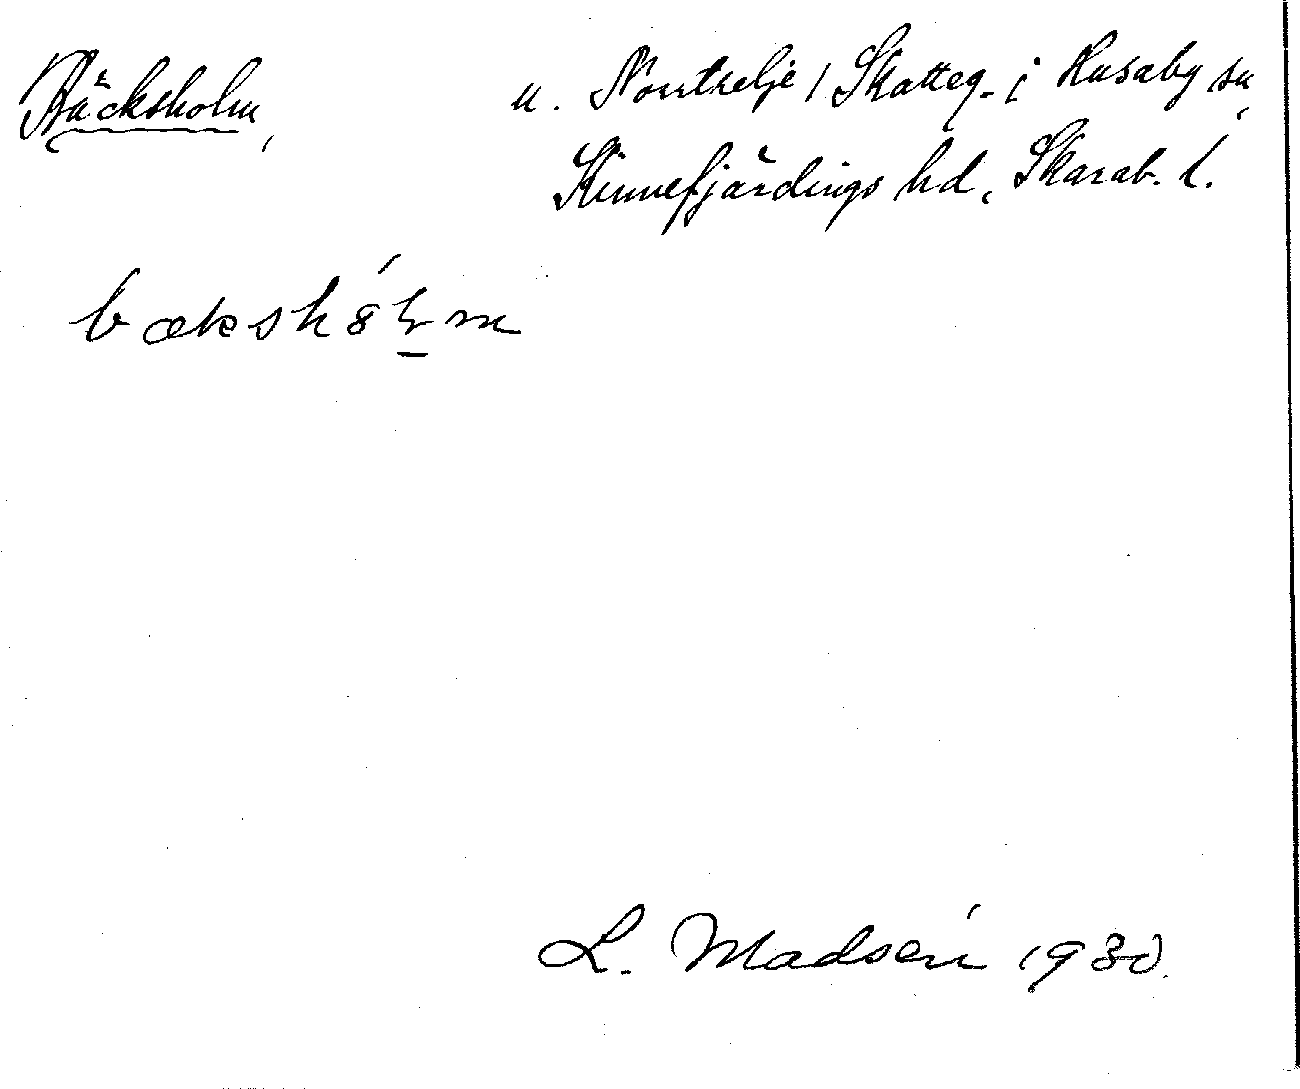 Bäcksholm, u. Norrtelje, Skatteg. i Husaby sn,
Kinnefjärdings hd, Skarab. l.
bækshólm
L. Madsén 1930.